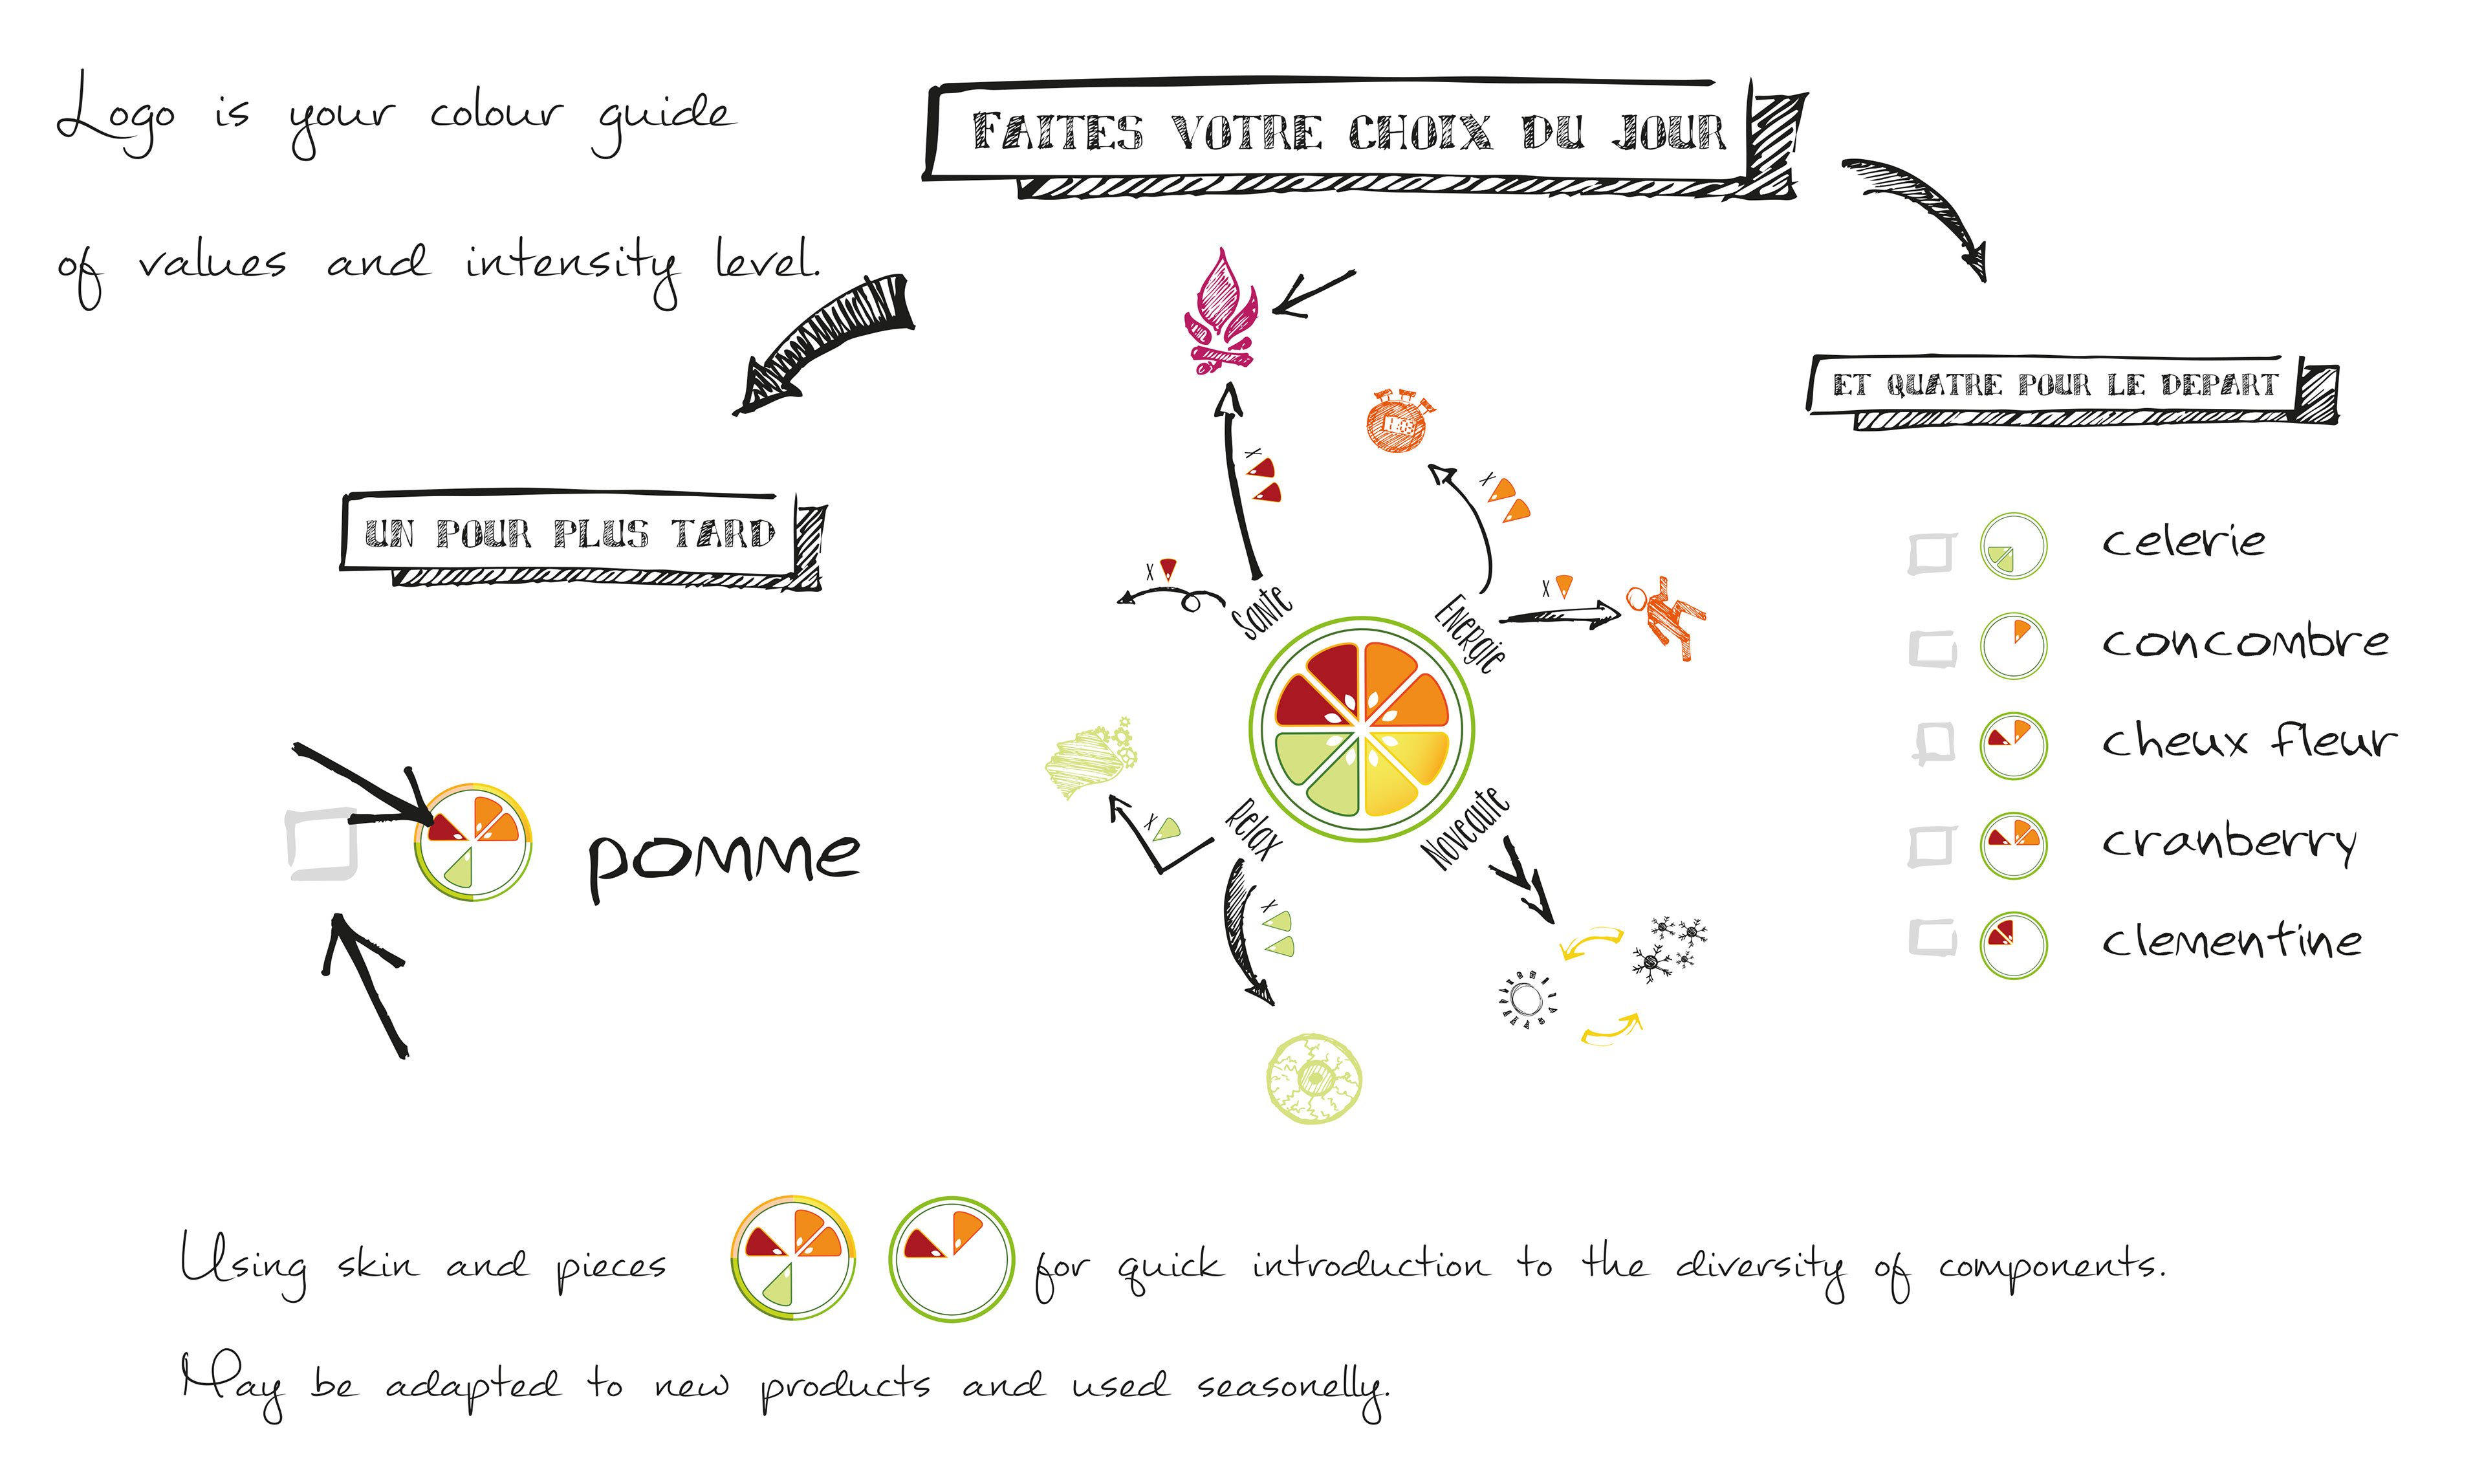 Logo is your colour guide
of values and intensity level.
FAITES VOTRE CHOIX DU JOUR
UN POUR PLUS TARD
pomme
X
X
X
X
Sante
Energie
Relax
Noveaute
X
X
ET QUATRE POUR LE DEPART
celerie
concombre
cheux fleur
cranberry
clementine
Using skin and pieces for quick introduction to the diversity of components.
May be adapted to new products and used seasonelly.